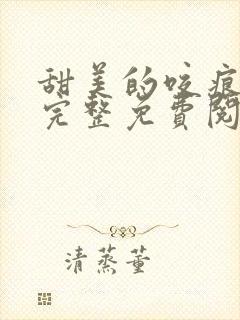 甜美的咬痕
完整免費閱
清蒸董